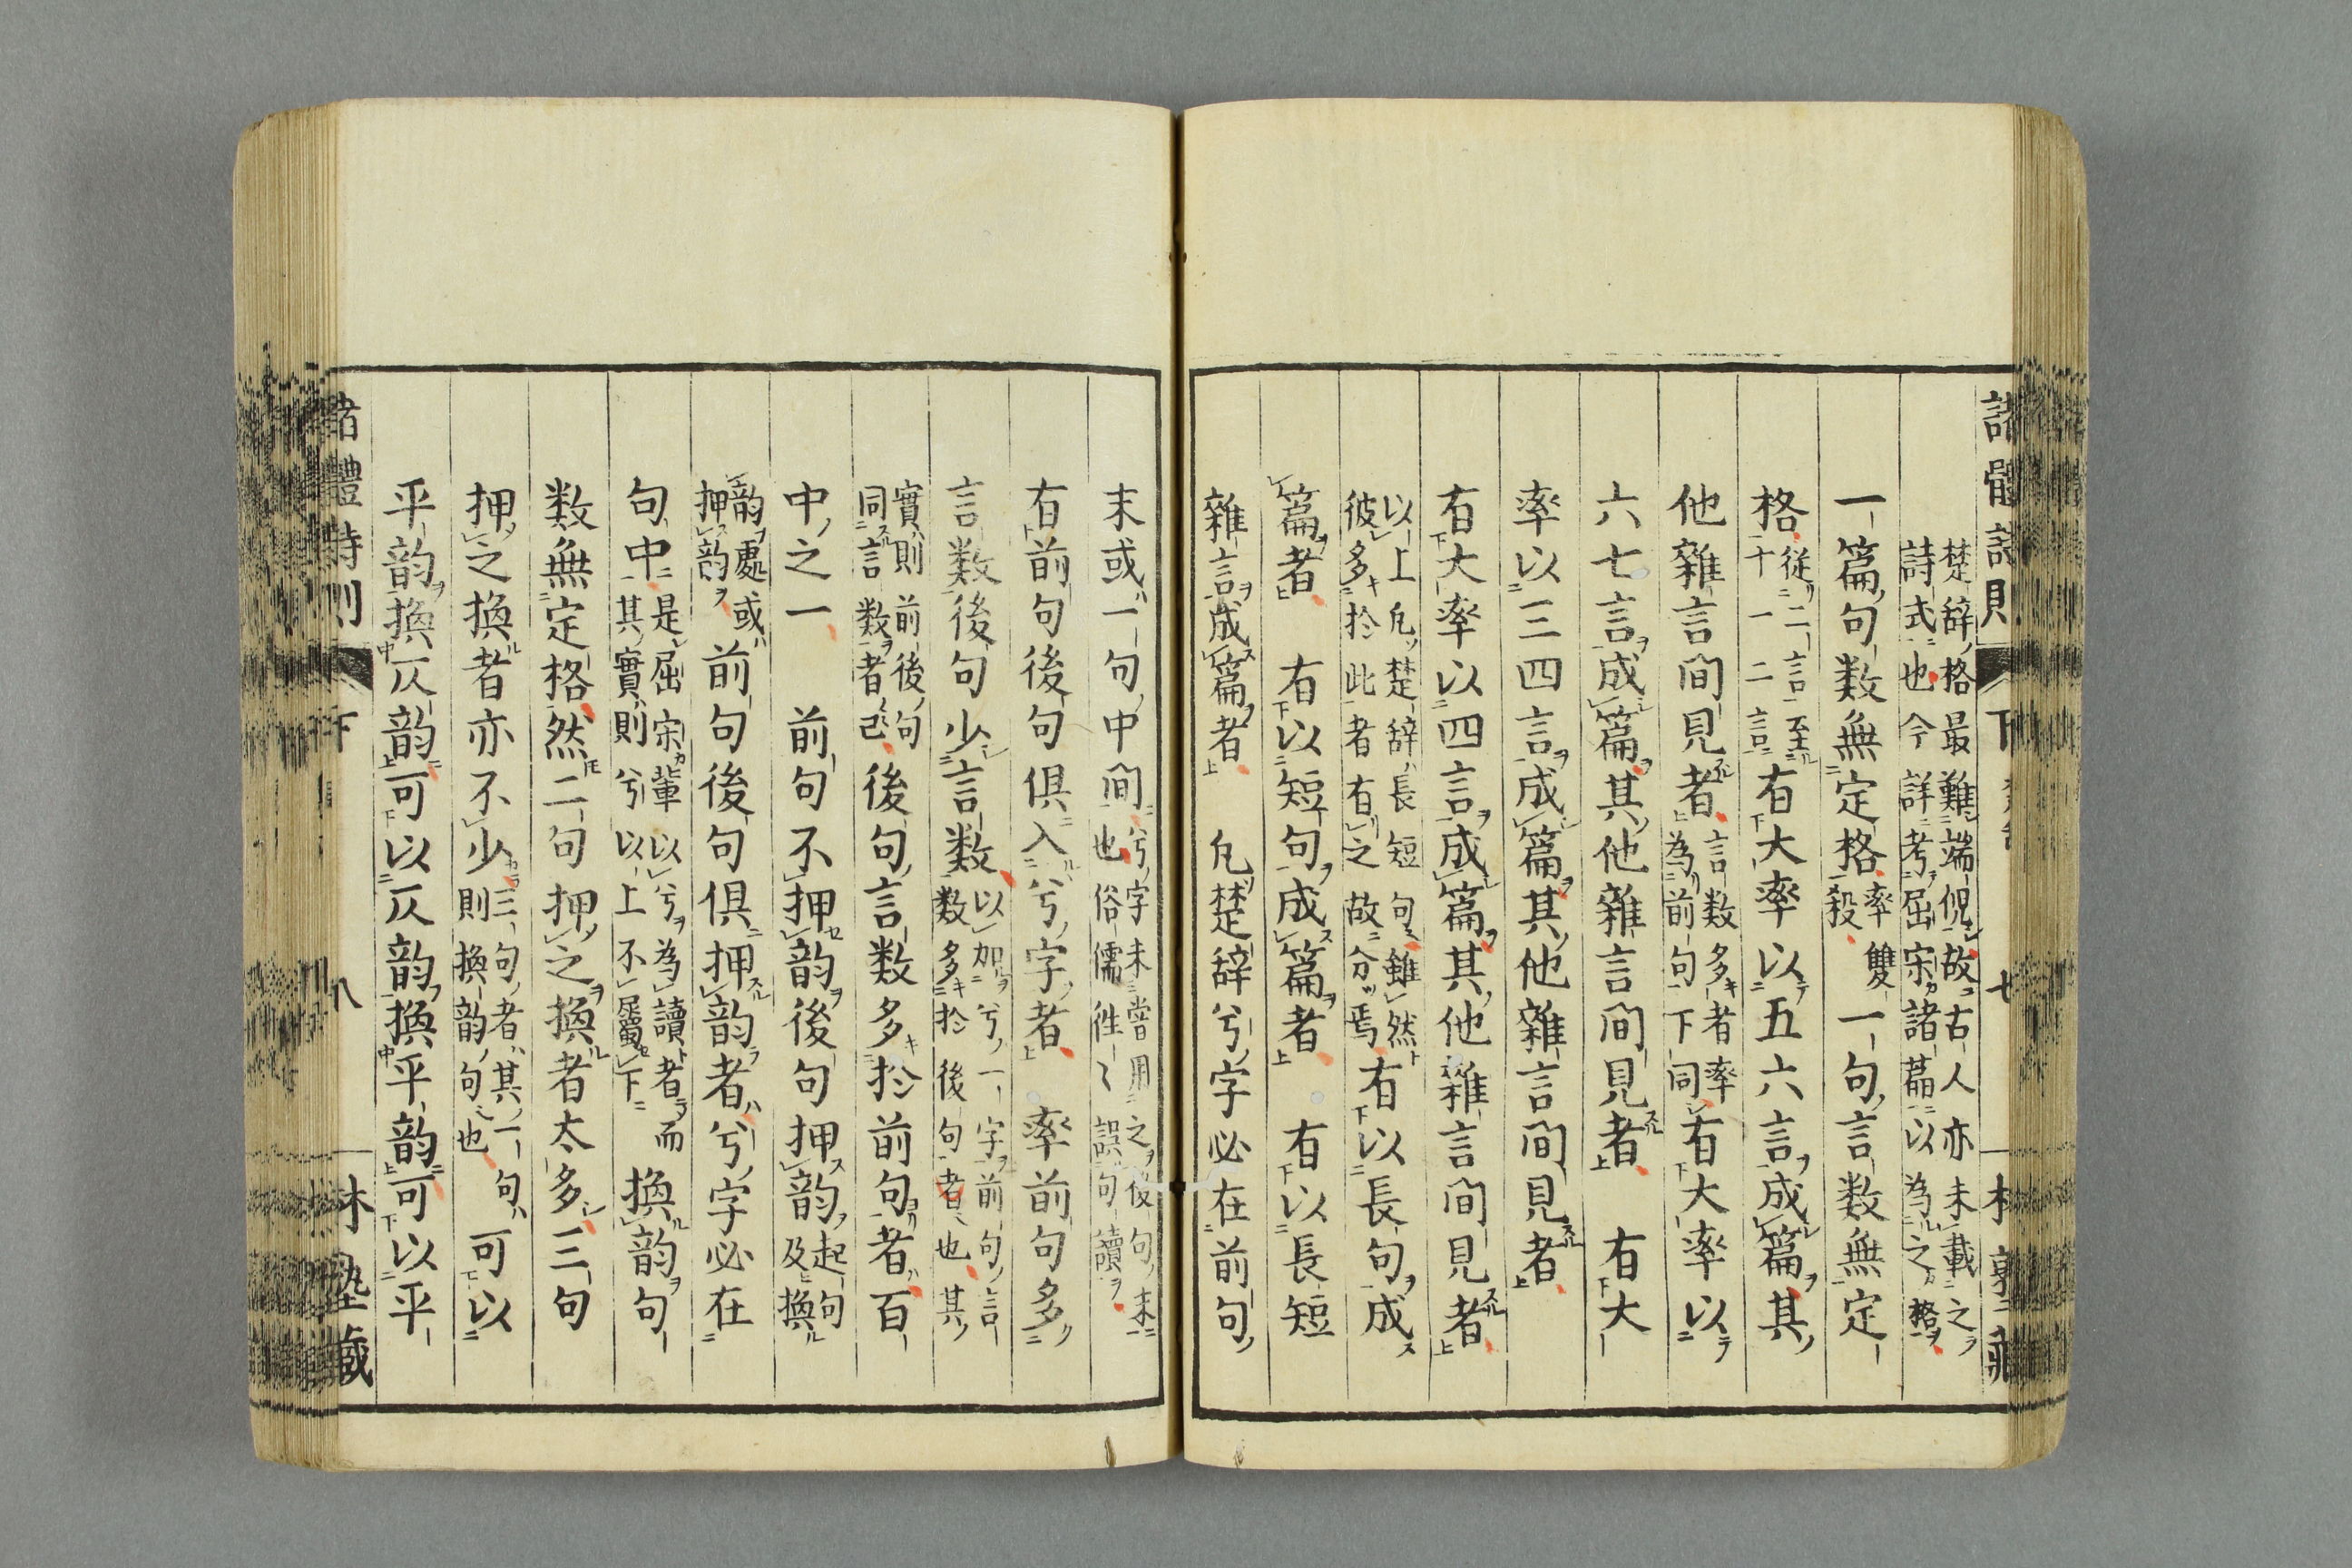 楚辞格最難端倪故古人亦未載之
詩式也今詳考屈宋諸篇以為之格
一篇句数無定格率雙一句言数無定
殺
格從二言至有大率以五六言成篇其
十一二言
他雜言間見者言数多者率有大率以
為前句下同
六七言成篇其他雜言間見者 有大
率以三四言成篇其他雜言間見者
有大率以四言成篇其他雜言間見者
以上凡楚辞長短句雖然有以長句成
彼多於此者有之故分焉
篇者 有以短句成篇者 有以長短
雜言成篇者 凡楚辞兮字必在前句
末或一句中間兮字未嘗用之後句末
也俗儒徃〻誤句讀
有前句後句俱入兮字者 率前句多
言数後句少言数以加兮一字前句言
数多於後句者也其
實則前後句後句言数多於前句者百
同言数者已
中之一 前句不押韵後句押韵起句
及換
韵處或前句後句俱押韵者兮字必在
押韵
句中是屈宋輩以兮為讀者而換韵句
其實則兮以上不屬下
数無定格然二句押之換者太多三句
押之換者亦不少三句者其一句可以
則換韵句也
平韵換仄韵可以仄韵換平韵可以平
諸體詩則 下 七
諸體詩則 下 八 塾藏